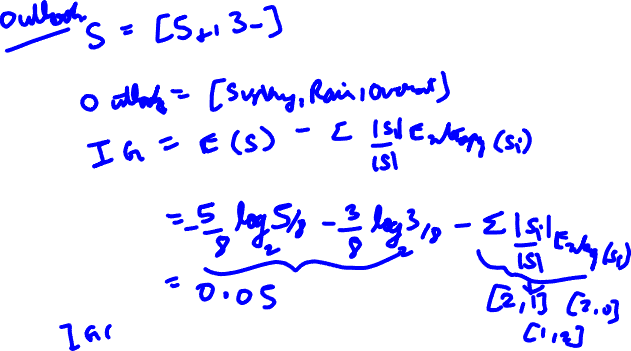 Outlook S = [5+, 3-]
Outlook = [Sunny, Rain, Overcast]
IG = E(S) - Σ |Si|/|S| Entropy (Si)
= -5/8 log₂ 5/8 - 3/8 log₂ 3/8 - Σ |Si|/|S| Entropy (Si)
= 0.05 [2,1] [2,0]
[1,2]
IG(